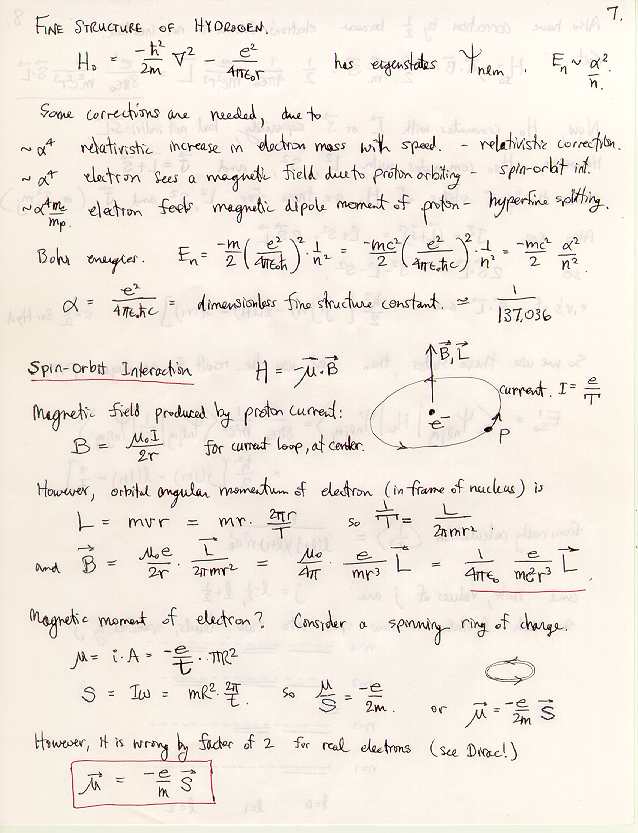 7.
FINE STRUCTURE OF HYDROGEN.
H₀ = -ħ²/2m ∇² - e²/4πε₀r has eigenstates Ψnlm. En ~ α²/n.
Some corrections are needed, due to
~α⁴ relativistic increase in electron mass with speed. - relativistic correction.
~α⁴ electron sees a magnetic field due to proton orbiting - spin-orbit int.
~α⁴ me/mp electron feels magnetic dipole moment of proton - hyperfine splitting.
Bohr energies. En = -m/2 (e²/4πε₀ħ)² · 1/n² = -mc²/2 (e²/4πε₀ħc)² · 1/n² = -mc²/2 α²/n².
α = e²/4πε₀ħc = dimensionless fine structure constant. ≃ 1/137.036
Spin-Orbit Interaction H = -μ⃗·B⃗
B⃗, L⃗
current. I = e/T
e⁻
P
Magnetic field produced by proton current:
B = μ₀I/2r for current loop, at center.
However, orbital angular momentum of electron (in frame of nucleus) is
L = mvr = mr · 2πr/T so 1/T = L/2πmr².
and B⃗ = μ₀e/2r · L⃗/2πmr² = μ₀/4π · e/mr³ L⃗ = 1/4πε₀ e/mc²r³ L⃗.
Magnetic moment of electron? Consider a spinning ring of charge.
μ = i·A = -e/t · πR²
S = Iω = mR² · 2π/t. so μ/S = -e/2m. or μ⃗ = -e/2m S⃗
However, it is wrong by factor of 2 for real electrons (see Dirac!)
μ⃗ = -e/m S⃗